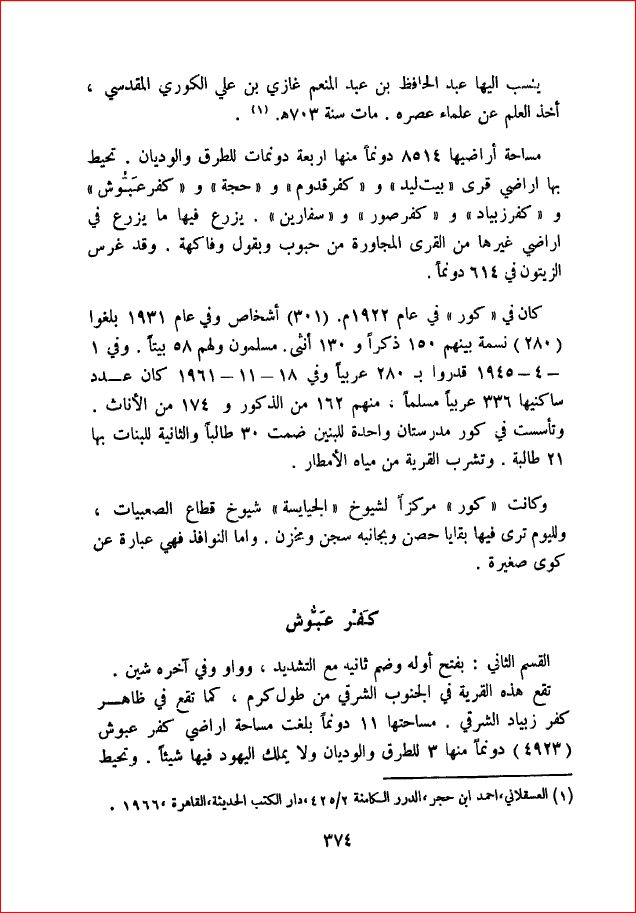 ينسب اليها عبد الحافظ بن عبد المنعم غازي بن علي الكوري المقدسي ،
أخذ العلم عن علماء عصره . مات سنة ٧٠٣هـ. (١) .
مساحة أراضيها ٨٥١٤ دونماً منها اربعة دونمات للطرق والوديان . تحيط
بها اراضي قرى «بيت‌ليد» و «كفرقدوم» و «حجة» و «كفرعَبُّوش»
و «كفرزيباد» و «كفرصور» و «سفارين» . يزرع فيها ما يزرع في
اراضي غيرها من القرى المجاورة من حبوب وبقول وفاكهة . وقد غرس
الزيتون في ٦١٤ دونماً .
كان في «كور» في عام ١٩٢٢م. (٣٠١) أشخاص وفي عام ١٩٣١ بلغوا
(٢٨٠) نسمة بينهم ١٥٠ ذكراً و ١٣٠ أنثى. مسلمون ولهم ٥٨ بيتاً . وفي ١
– ٤ – ١٩٤٥ قدروا بـ ٢٨٠ عربياً وفي ١٨ – ١١ – ١٩٦١ كان عـــدد
ساكنيها ٣٣٦ عربياً مسلماً ، منهم ١٦٢ من الذكور و ١٧٤ من الأناث .
وتأسست في كور مدرستان واحدة للبنين ضمت ٣٠ طالباً والثانية للبنات بها
٢١ طالبة . وتشرب القرية من مياه الأمطار .
وكانت «كور» مركزاً لشيوخ «الجيايسة» شيوخ قطاع الصعبيات ،
ولليوم ترى فيها بقايا حصن وبجانبه سجن ومخزن . واما النوافذ فهي عبارة عن
كوى صغيرة .
كَفْر عَبُّوش
القسم الثاني : بفتح أوله وضم ثانيه مع التشديد ، وواو وفي آخره شين .
تقع هذه القرية في الجنوب الشرقي من طول‌كرم ، كما تقع في ظاهـــر
كفر زيباد الشرقي . مساحتها ١١ دونماً بلغت مساحة اراضي كفر عبوش
(٤٩٢٣) دونماً منها ٣ للطرق والوديان ولا يملك اليهود فيها شيئاً . وتحيط
(١) العسقلاني،احمد ابن حجر،الدرر الكامنة ٤٢٥/٢،دار الكتب الحديثة،القاهرة ،١٩٦٦ .
٣٧٤